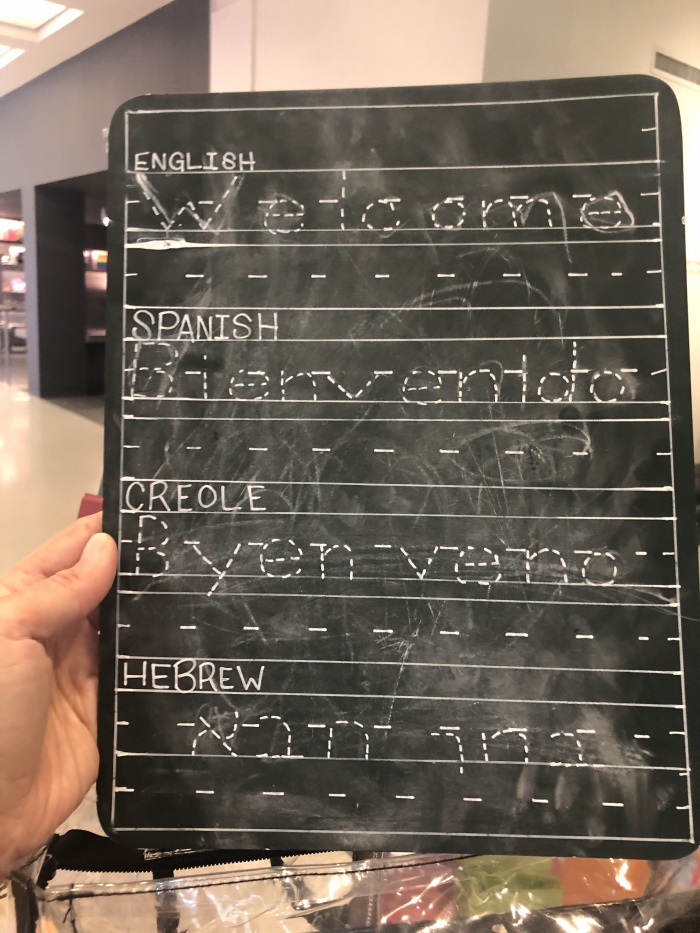 ENGLISH
Welcome
SPANISH
Bienvenido
CREOLE
Byen veno
HEBREW
ברוך הבא